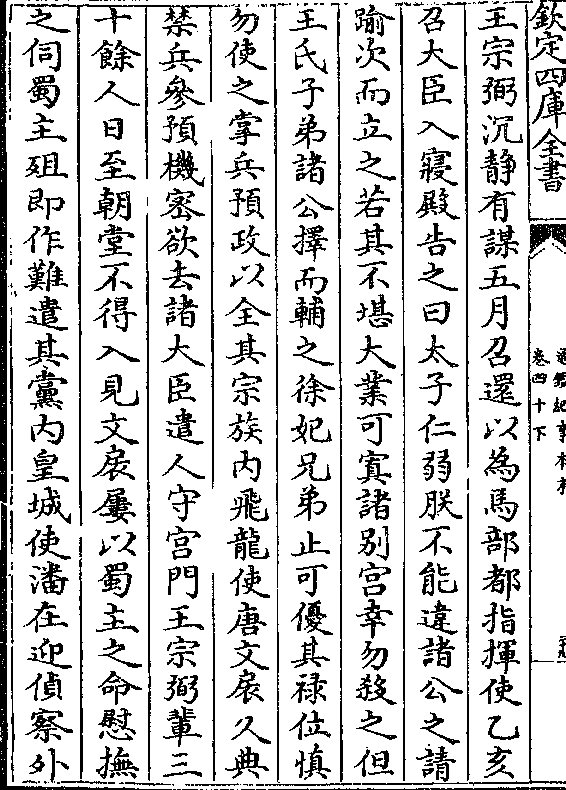 欽定四庫全書
卷四十下
王宗弼沉静有謀五月召還以為馬部都指揮使乙亥
召大臣入寢殿告之曰太子仁弱朕不能違諸公之請
踰次而立之若其不堪大業可寘諸别宮幸勿殺之但
王氏子弟諸公擇而輔之徐妃兄弟止可優其禄位慎
勿使之掌兵預政以全其宗族内飛龍使唐文扆久典
禁兵參預機宻欲去諸大臣遣人守宮門王宗弼軰三
十餘人日至朝堂不得入見文扆屢以蜀主之命慰撫
之伺蜀主殂即作難遣其黨内皇城使潘在迎偵察外